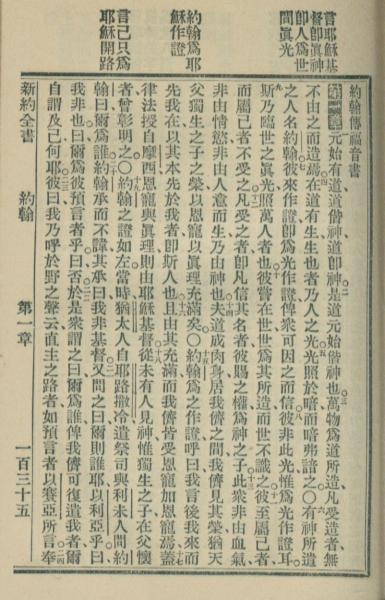 言耶穌基
督即眞神
即人爲世
間眞光
約翰爲耶
穌作證
言己只爲
耶穌開路
約翰傳福音書
第一章 元始有道道偕神道即神是道元始偕神也萬物爲道所造凡受造者無
不由之而造焉在道有生生也者乃人之光光照於暗而暗弗諳之〇有神所遣
之人名約翰彼來作證即爲光作證俾衆可因之而信彼非此光惟爲光作證耳
斯乃臨世之眞光照萬人者也彼嘗在世世爲其所造而世不識之彼至屬己者
而屬己者不受之凡受之者即凡信其名者彼賜之權爲神之子此衆非由血氣
非由情慾非由人意而生乃由神也夫道成肉身居我儕之間我儕見其榮猶天
父獨生之子之榮以恩寵以眞理充滿矣〇約翰爲之作證呼曰我言後我來而
先我在以其本先於我者即斯人也且由其充滿而我儕皆受恩寵加恩寵焉蓋
律法授自摩西恩寵與眞理則由耶穌基督從未有人見神惟獨生之子在父懷
者曾彰明之〇約翰之證如左當時猶太人自耶路撒冷遣祭司與利未人問約
翰曰爾爲誰約翰承而不諱其承曰我非基督又問之曰爾則誰耶以利亞乎曰
我非也曰爾爲彼預言者乎曰否於是衆謂之曰爾爲誰俾我儕可復遣我者爾
自謂及己何耶彼曰我乃呼於野之聲云直主之路者如預言者以賽亞所言奉
新約全書 約翰 第一章 一百三十五